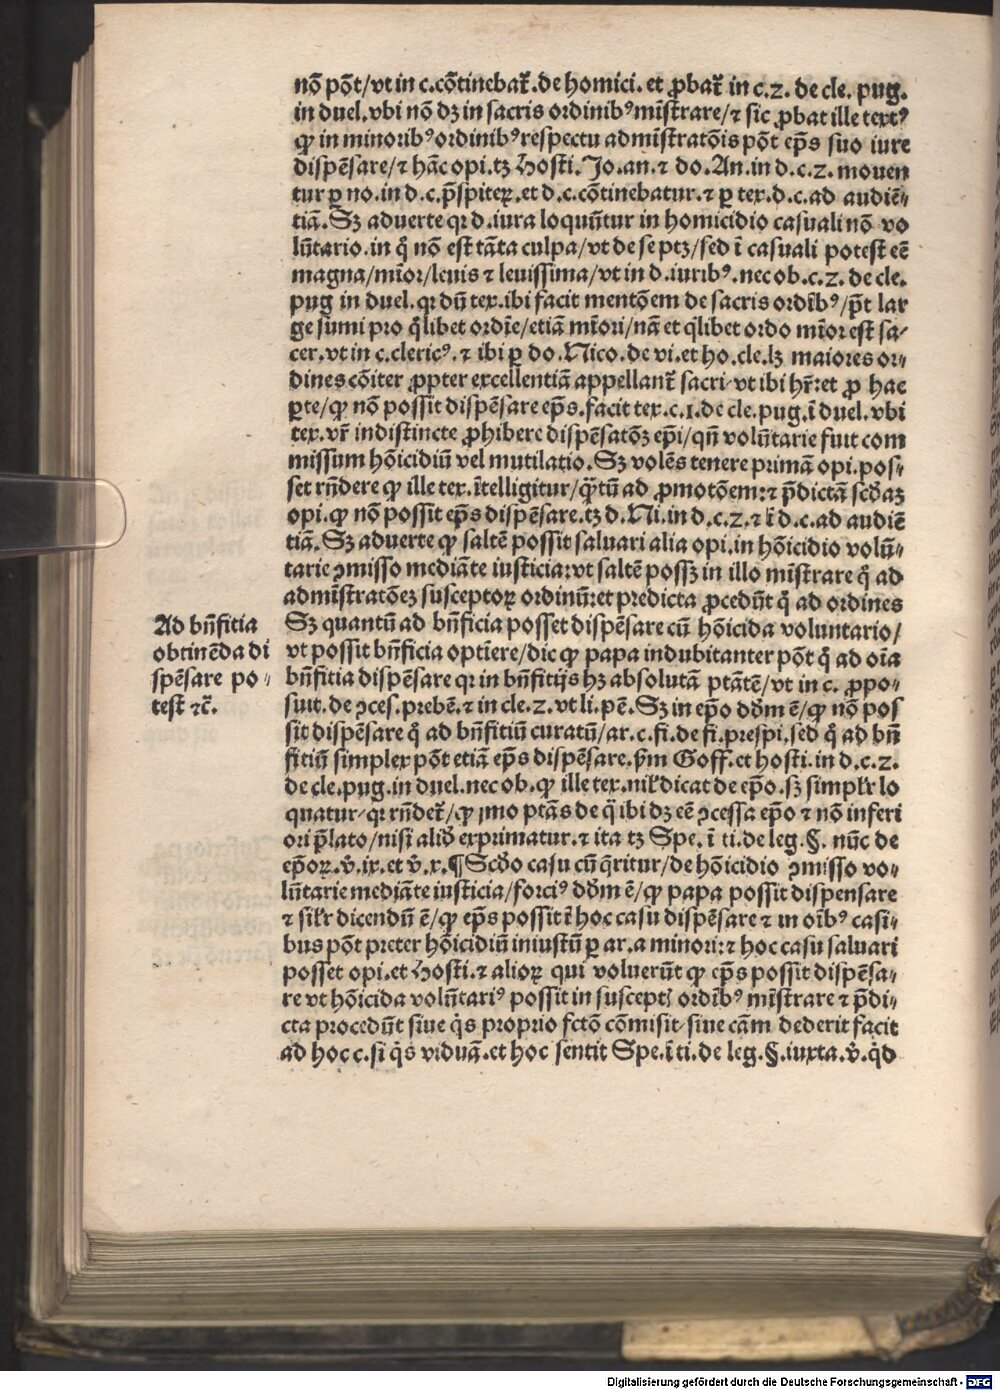 nõ põt/vt in c.cõtinebat̃.de homici. et ꝓbat̃ in c.2. de cle. pug.
in duel.vbi nõ dʒ in sacris ordinibꝰ mĩstrare/⁊ sic ꝓbat ille textꝰ
ꝙ in minoribꝰ ordinibꝰ respectu admĩstratõis põt ep̃s suo iure
dispẽsare/⁊ hãc opi.tʒ Hosti. Jo.an.⁊ do.An.in d.c.2. mouen
tur ꝑ no.in d.c.p̃spiteꝝ.et d.c.cõtinebatur.⁊ ꝑ tex.d.c.ad audiẽ⸗
tiã.Sʒ aduerte qꝛ d.iura loquũtur in homicidio casuali nõ vo
lũtario.in q̃ nõ est tãta culpa/vt de se ptʒ/sed ĩ casuali potest eẽ
magna/mĩor/leuis ⁊ leuissima/vt in d.iuribꝰ.nec ob.c.2. de cle.
pug in duel.qꝛ dũ tex.ibi facit mentõem de sacris ordĩbꝰ/p̃t lar
ge sumi pro q̃libet ordĩe/etiã mĩori/nã et q̃libet ordo mĩor est sa⸗
cer.vt in c.clericꝰ.⁊ ibi ꝑ do.Nico.de vi.et ho.cle.lʒ maiores or⸗
dines cõiter ꝓpter excellentiã appellant̃ sacri/vt ibi hr̃:et ꝓ hac
ꝑte/ꝙ nõ possit dispẽsare ep̃s.facit tex.c.1.de cle.pug.ĩ duel.vbi
tex.vr̃ indistincte ꝓhibere dispẽsatõʒ ep̃i/qñ volũtarie fuit com
missum hõicidiũ vel mutilatio.Sʒ volẽs tenere primã opi.pos⸗
set rñdere ꝙ ille tex.ĩtelligitur/q̃tũ ad ꝓmotõem:⁊ p̃dictã scđaʒ
opi.ꝙ nõ possit ep̃s dispẽsare.tʒ d.Ni.in d.c.2.⁊ ĩ d.c.ad audiẽ
tiã.Sʒ aduerte ꝙ saltẽ possit saluari alia opi.in hõicidio volũ⸗
tarie ꝯmisso mediãte iusticia:vt saltẽ possʒ in illo mĩstrare q̃ ad
admĩstratõeʒ susceptoꝝ ordinũ:et predicta ꝓcedũt q̃ ad ordines
Sʒ quantũ ad bñficia posset dispẽsare cũ hõicida voluntario/
vt possit bñficia optĩere/dic ꝙ papa indubitanter põt q̃ ad oĩa
bñfitia dispẽsare qꝛ in bñfitijs hʒ absolutã ptãtẽ/vt in c. ꝓpo⸗
suit.de ꝯces.prebẽ.⁊ in cle.2.vt li.pẽ.Sʒ in ep̃o dõm ẽ/ꝙ nõ pos
sit dispẽsare q̃ ad bñfitiũ curatũ/ar.c.fi.de fi.prespi.sed q̃ ad bñ
fitiũ simplex põt etiã ep̃s dispẽsare.ẜm Goff.et hosti.in d.c.2.
de cle.pug.in duel.nec ob.ꝙ ille tex.nil̃ dicat de ep̃o.sʒ simplr̃ lo
quatur/qꝛ rñdet̃/ꝙ jmo ptãs de q̃ ibi dʒ eẽ ꝯcessa ep̃o ⁊ nõ inferi
ori p̃lato/nisi aliđ exprimatur.⁊ ita tʒ Spe. ĩ ti.de leg.§. nũc de
ep̃oꝝ.v̾.ix.et v̾.x.¶Scđo casu cũ q̃ritur/de hõicidio ꝯmisso vo⸗
lũtarie mediãte iusticia/forciꝰ dõm ẽ/ꝙ papa possit dispensare
⁊ sil̃r dicendũ ẽ/ꝙ ep̃s possit ĩ hoc casu dispẽsare ⁊ in oĩbꝰ casi⸗
bus põt preter hõicidiũ iniustũ ꝑ ar.a minori:⁊ hoc casu saluari
posset opi.et Hosti.⁊ alioꝝ qui voluerũt ꝙ ep̃s possit dispẽsa⸗
re vt hõicida volũtariꝰ possit in susceptꝭ ordĩbꝰ mĩstrare ⁊ p̃di⸗
cta procedũt siue q̃s proprio fctõ cõmisit/siue cãm dederit facit
ad hoc c.si q̃s viduã.et hoc sentit Spe.ĩ ti.de leg.§.iuxta.v̾.q̃d
Ad bñfitia
obtinẽda di
spẽsare po⸗
test ⁊c̃.
Digitalisierung gefördert durch die Deutsche Forschungsgemeinschaft - DFG